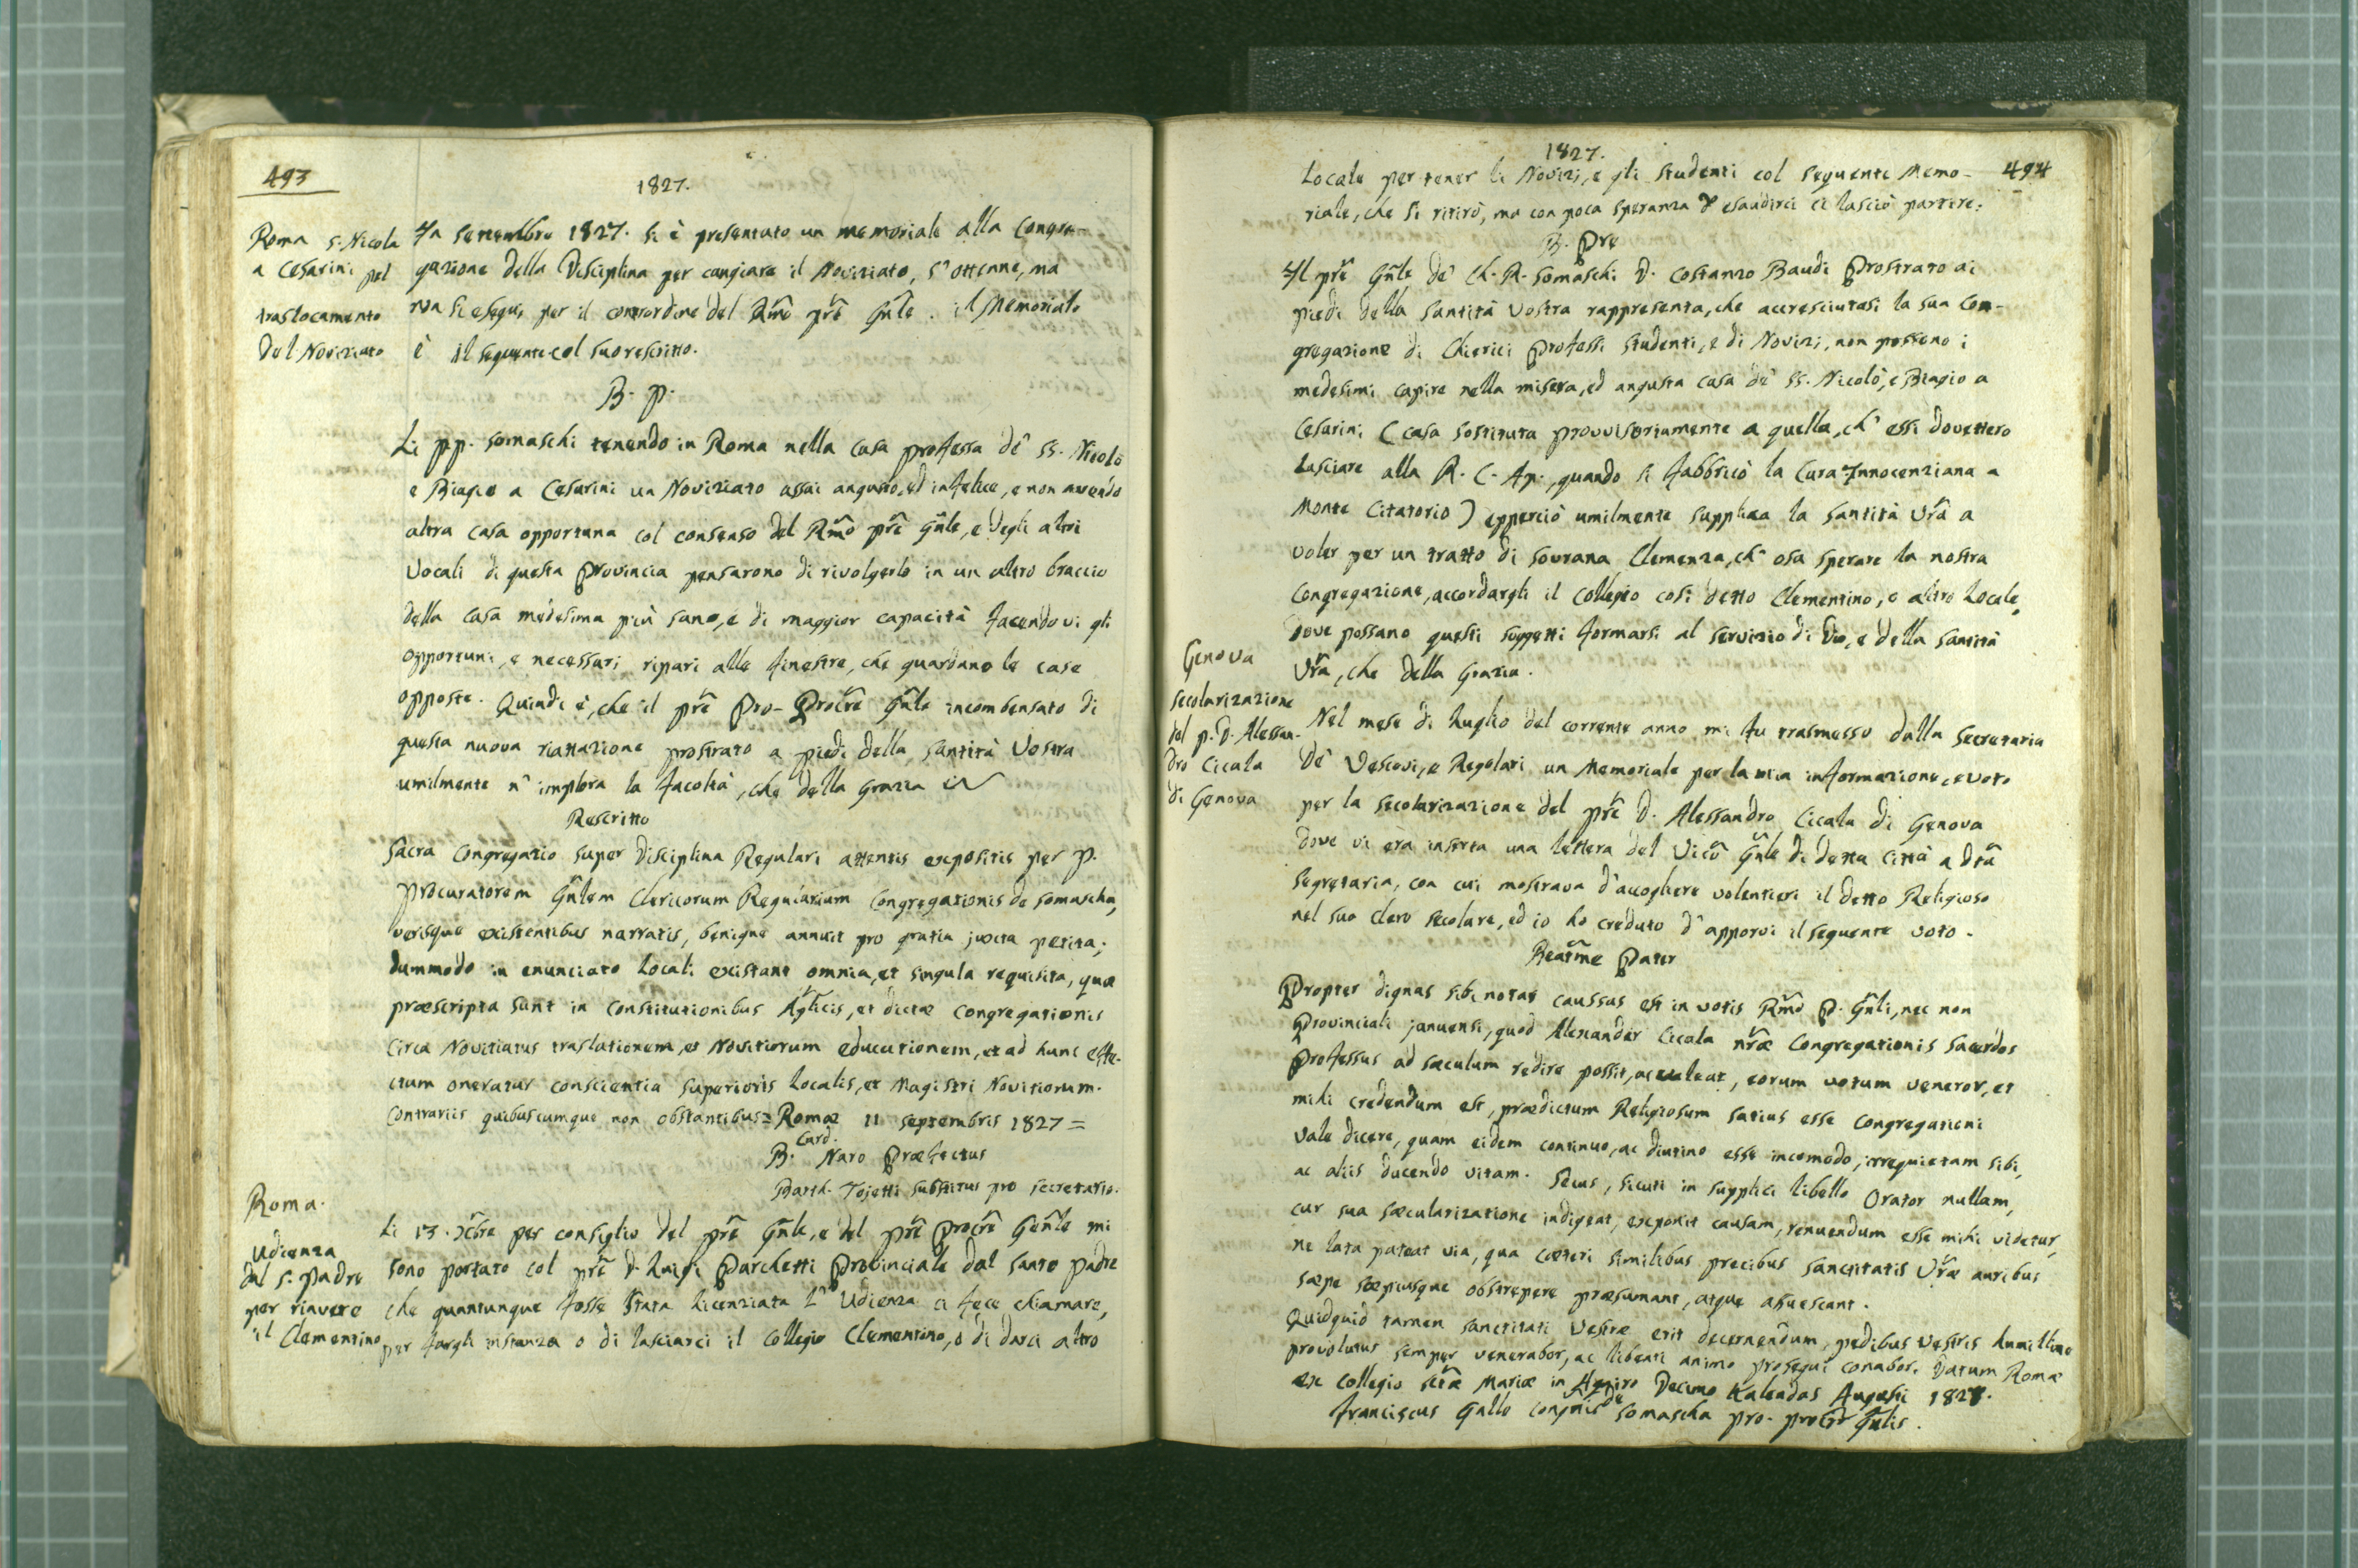 493
1827.
Roma S. Nicola
a Cesarini pel
traslocamento
del Noviziato
In Settembre 1827. si è presentato un memoriale alla Congre-
gazione della Disciplina per cangiare il Noviziato, s'ottenne, ma
non si eseguì per il contrordine del Rm̃o prẽ Gñle. il Memoriale
è il seguente col suo rescritto.
B. P.
Li PP. Somaschi tenendo in Roma nella Casa professa de' SS. Nicolò
e Biagio a Cesarini un Noviziato assai angusto, ed infelice, e non avendo
altra casa opportuna col consenso del Rm̃o prẽ Gñle, e degli altri
Vocali di questa Provincia pensarono di rivolgerlo in un altro braccio
della Casa medesima più sano, e di maggior capacità facendovi gli
opportuni, e necessari ripari alle finestre, che guardano le case
opposte. Quindi è, che il prẽ Pro-Procr̃e Gñle incombensato di
questa nuova riattazione prostrato a piedi della Santità Vostra
umilmente n'implora la facoltà, che della Grazia
Rescritto
Sacra Congregatio super Disciplina Regulari attentis expositis per P.
Procuratorem Gñlem Clericorum Regularium Congregationis de Somascha,
verisque existentibus narratis, benigne annuit pro gratia juxta petita;
dummodo in enunciato Locali existant omnia, et singula requisita, quæ
præscripta sunt in Constitutionibus Ap̃licis, et dictæ Congregationis
circa Novitiatus traslationem, et Novitiorum educationem, et ad hunc effe-
ctum oneratur conscientia Superioris Localis, et Magistri Novitiorum.
Contrariis quibuscumque non obstantibus = Romæ 11 Septembris 1827 =
B. Card. Naro Præfectus
Barth. Tojetti Substitus pro Secretario.
Roma.
Udienza
dal S. Padre
per riavere
il Clementino
Li 13. Xbre per consiglio del prẽ Gñle, e del prẽ Procr̃e Geñle mi
sono portato col prẽ D. Luigi Parchetti Provinciale dal Santo Padre
che quantunque fosse stata licenziata l'Udienza ci fece chiamare,
per fargli instanza o di lasciarci il Collegio Clementino, o di darci altro
1827.
494
Locale per tener li Novizi, e gli Studenti col seguente Memo-
riale, che si ritirò, ma con poca speranza d'esaudirci ci lasciò partire.
B. Prẽ
Il prẽ Gñle de' Ch. R. Somaschi D. Costanzo Baudi Prostrato ai
piedi della Santità Vostra rappresenta, che accresciutasi la sua Con-
gregazione di Chierici Professi Studenti, e di Novizi, non possono i
medesimi capire nella misera, ed angusta casa de' SS. Nicolò, e Biagio a
Cesarini (casa sostituta provvisoriamente a quella, ch'essi dovettero
lasciare alla R. C. Ap., quando si fabbricò la Curia Innocenziana a
Monte Citatorio) epperciò umilmente supplica la Santità Vrã a
voler per un tratto di sovrana Clemenza, ch'osa sperare la nostra
Congregazione, accordargli il Collegio così detto Clementino, o altro Locale,
dove possano questi soggetti formarsi al servizio di Dio, e della Santità
Vrã, che della Grazia.
Genova
Secolarizazione
del p. D. Alessan-
dro Cicala
di Genova
Nel mese di Luglio del corrente anno mi fu trasmesso dalla Secretaria
de' Vescovi, e Regolari un Memoriale per la mia informazione, e voto
per la secolarizazione del prẽ D. Alessandro Cicala di Genova
dove vi era inserta una lettera del Vicõ Gñle di detta Città a dtã
Segretaria, con cui mostrava d'accogliere volentieri il detto Religioso
nel suo Clero Secolare, ed io ho creduto d'apporvi il seguente voto.
Beatm̃e Pater
Propter dignas sibi notas caussas est in votis Rm̃o P. Gñli, nec non
Provinciali januensi, quod Alexander Cicala nr̃æ Congregationis Sacerdos
Professus ad sæculum redire possit, ac valeat, eorum votum veneror, et
mihi credendum est, prædictum Religiosum satius esse Congregationi
vale dicere, quam eidem continuo, ac diutino esse incomodo, irrequietam sibi,
ac aliis ducendo vitam. Secus, sicuti in supplici libello Orator nullam,
cur sua sæcularizatione indigeat, exponit causam, renuendum esse mihi videtur,
ne lata pateat via, qua cæteri similibus precibus Sanctitatis Vr̃æ auribus
sæpe sæpiusque obstrepere præsumant, atque assuescant.
Quidquid tamen Sanctitati Vestræ erit decernendum, pedibus Vestris humillime
provolutus semper venerabor, ac libenti animo prosequi conabor. Datum Romæ
ex Collegio Sctæ Mariæ in Aquiro Decimo Kalendas Augusti 1827.
Franciscus Gallo Congnis de Somascha pro-procr̃ Gñlis.